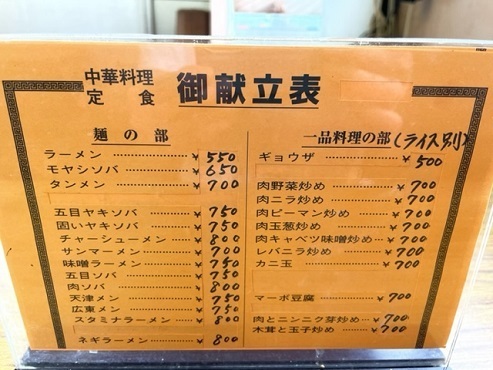 中華料理
定食
御献立表
麺の部
ラーメン ¥550
モヤシソバ ¥650
タンメン ¥700
五目ヤキソバ ¥750
固いヤキソバ ¥750
チャーシューメン ¥800
サンマーメン ¥700
味噌ラーメン ¥750
五目ソバ ¥750
肉ソバ ¥800
天津メン ¥750
広東メン ¥750
スタミナラーメン ¥800
ネギラーメン ¥800
一品料理の部(ライス別)
ギョウザ ¥500
肉野菜炒め ¥700
肉ニラ炒め ¥700
肉ピーマン炒め ¥700
肉玉葱炒め ¥700
肉キャベツ味噌炒め ¥700
レバニラ炒め ¥700
カニ玉 ¥700
マーボ豆腐 ¥700
肉とニンニク芽炒め ¥700
木茸と玉子炒め ¥700